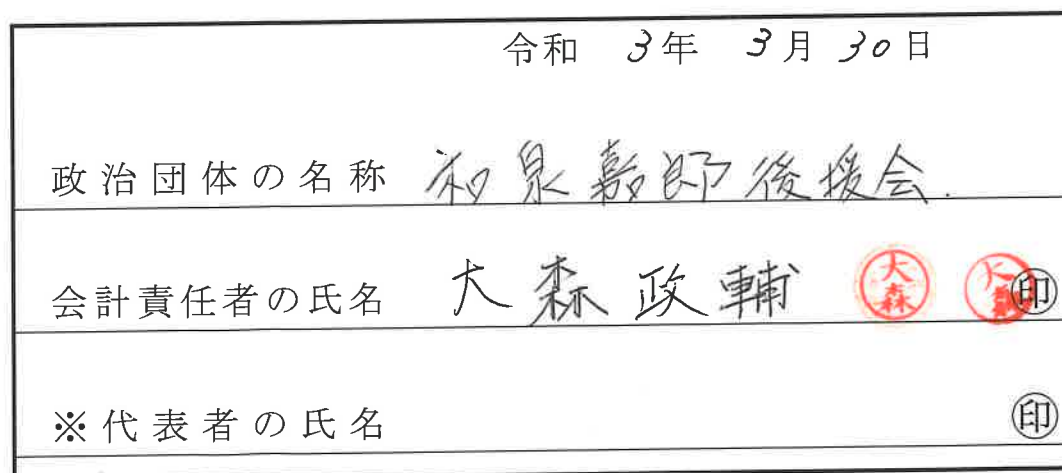 令和 3年 3月 30日
政治団体の名称 和泉嘉郎後援会.
会計責任者の氏名 大森政輔 大森 大森 ㊞
※代表者の氏名 ㊞